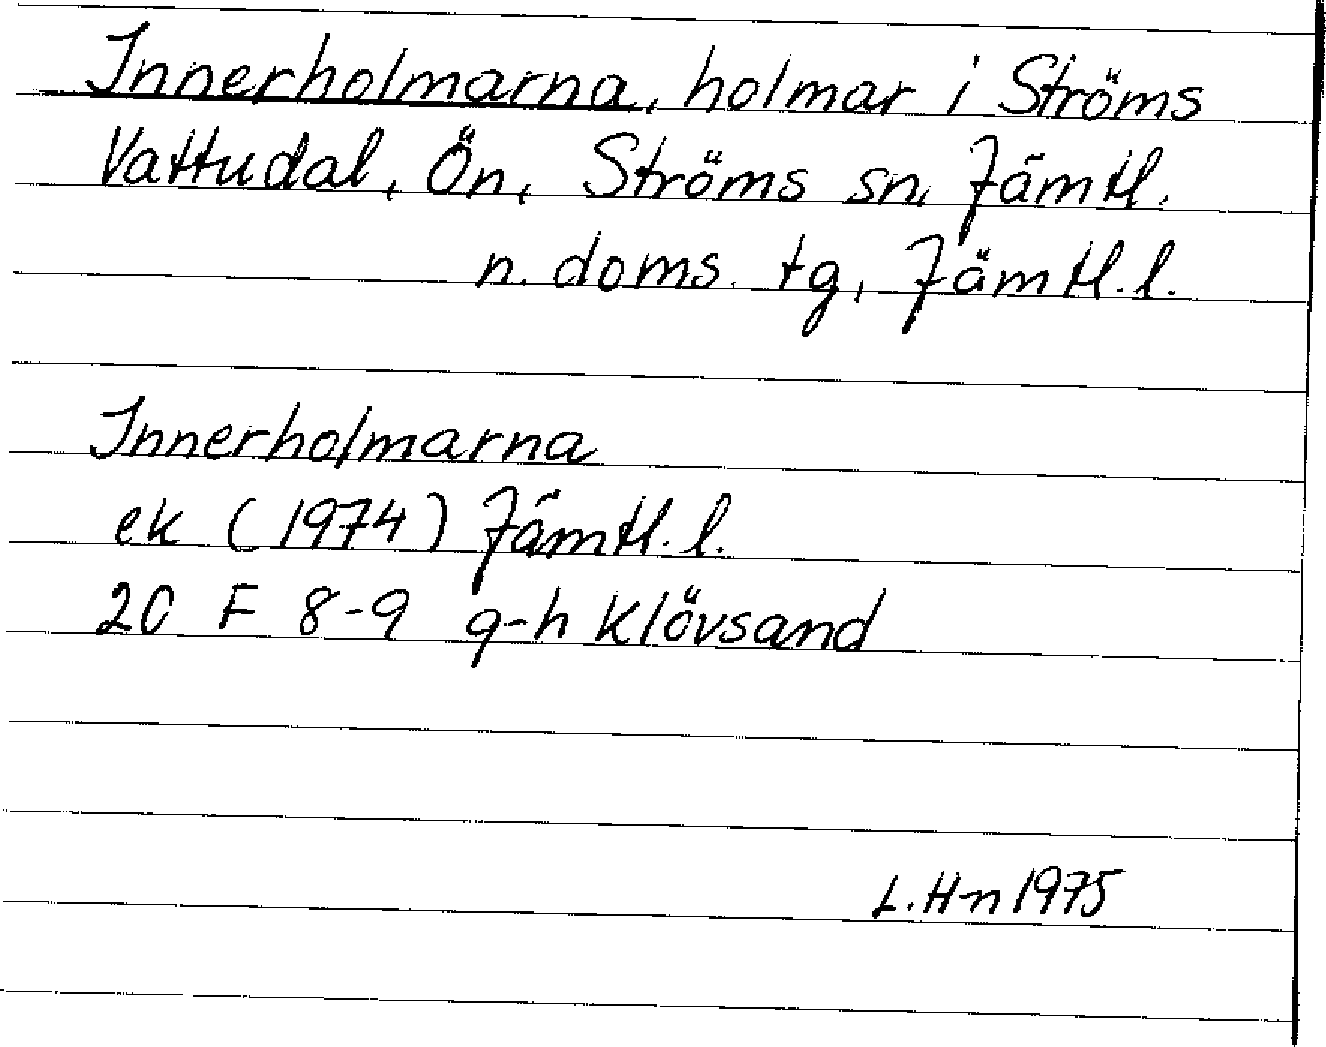 Innerholmarna, holmar i Ströms
Vattudal, Ön, Ströms sn, Jämtl.
n. doms. tg, Jämtl. l.
Innerholmarna
ek (1974) Jämtl. l.
20 F 8-9 g-h Klövsand
L. H-n 1975